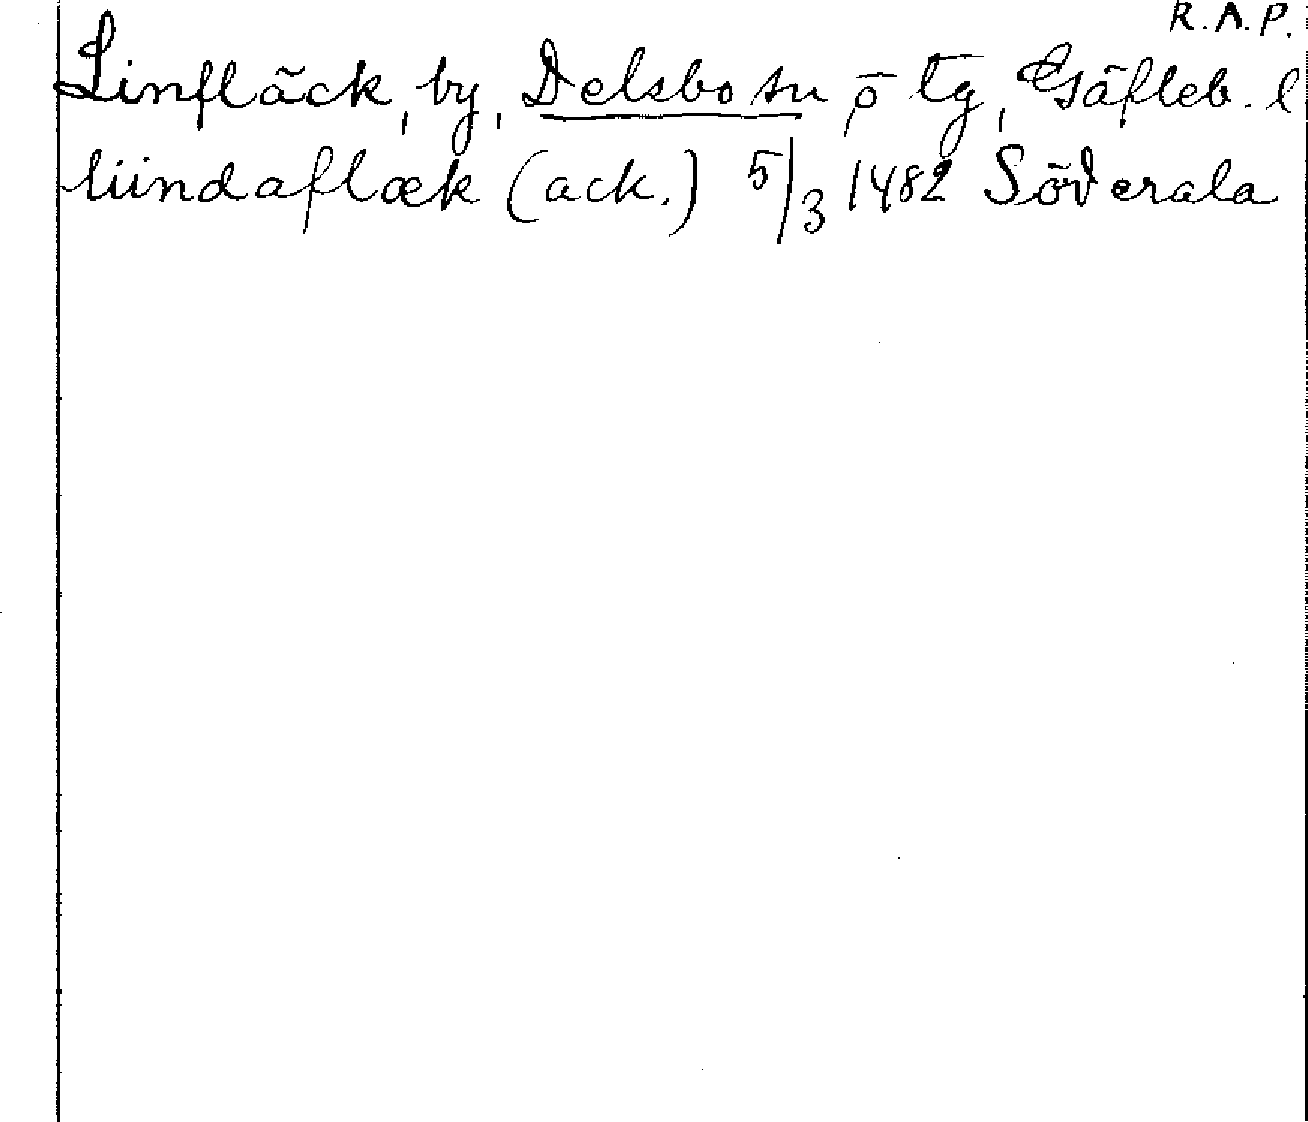 R.A.P.
Linfläck, by, Delsbo sn o tg, Gäfleb. l
liindaflæk (ack.) 5/3 1482 Söderala